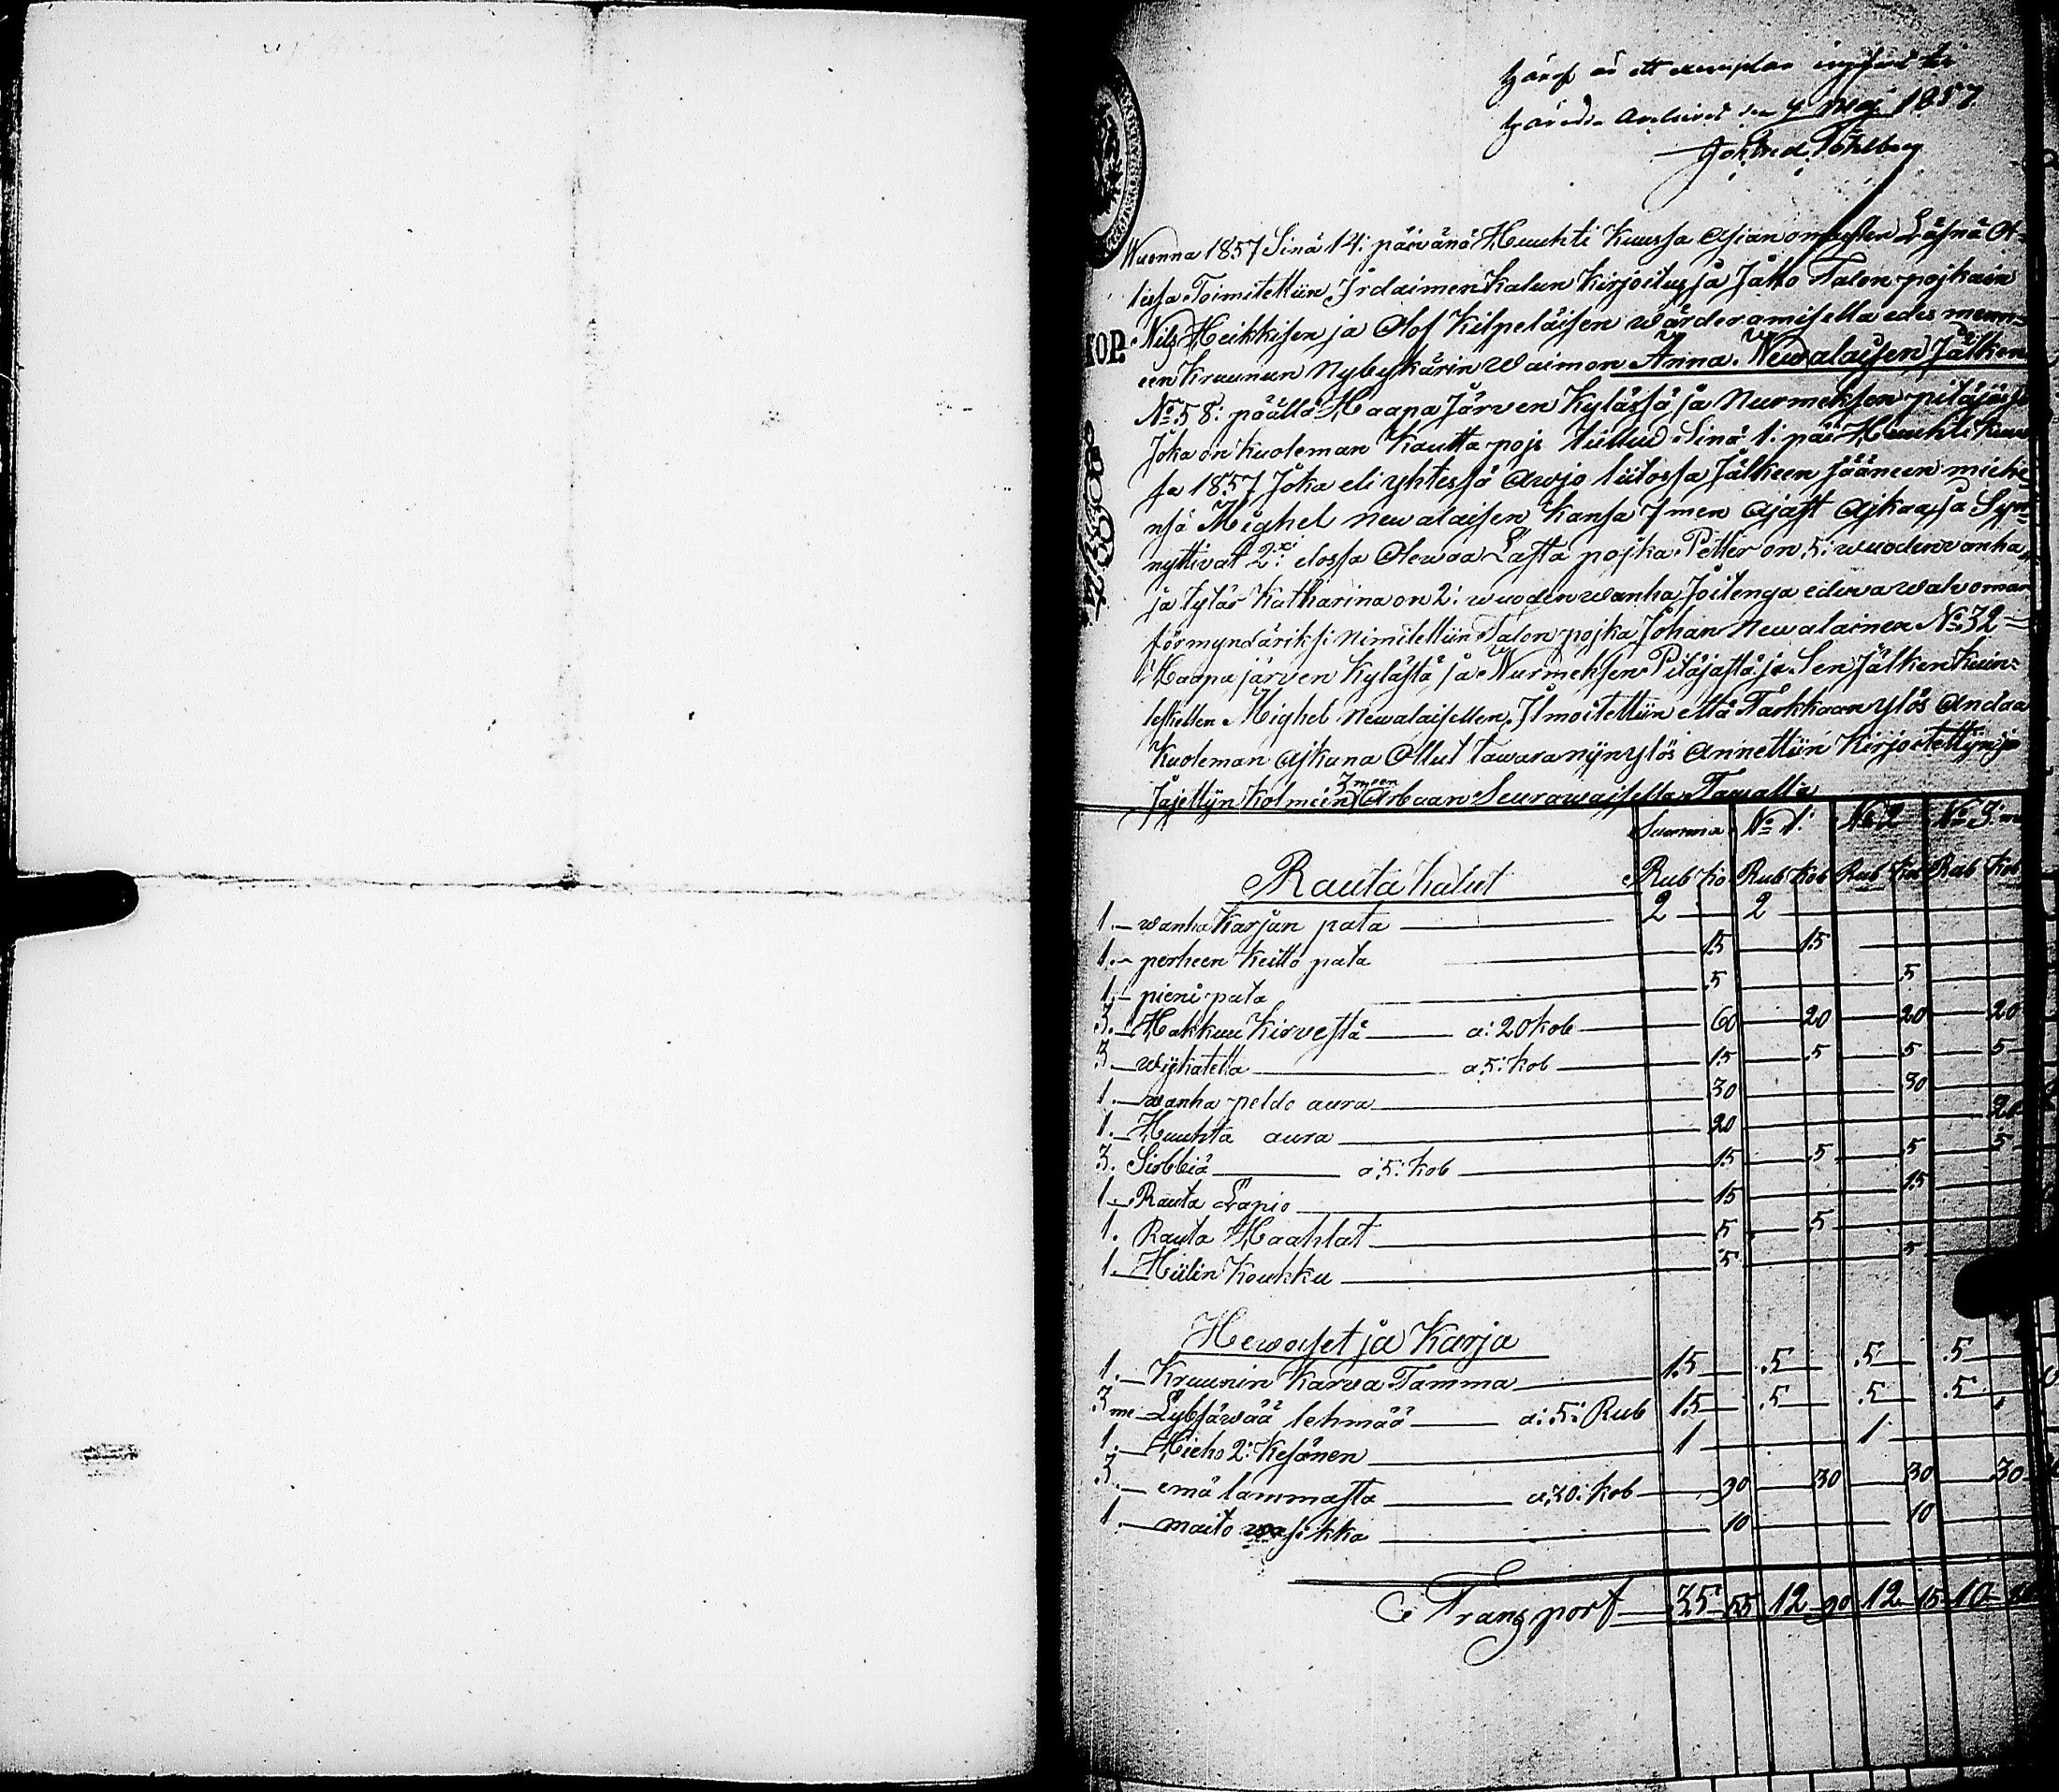 Häraf är ett exemplar ingifvit til
Härads Archivet den 4 Maj 1857.
Wuonna 1857 Sinä 14: päivänä Huuhti Kuussa Asian omaisten Läsnä Ol-
lessa Toimitettiin Irdaimen Kalun Kirjoitus ja Jatko Talon pojkain
Nils Heikkisen ja Olof Kilpeläisen wärderamisella edes menn-
een Kruunun Nybykärin Waimon Anna Newalaisen Jälken
KOP.
No 58: päällä Haapa Järwen Kylässä ja Nurmeksen pitäjäss
Joka on Kuoleman Kautta pojs tullud Sinä 1: päi Huuhti Kuu
sa 1857 Joka eli yhtessä Awjo liitossa Jälkeen jääneen miehe
nsä Mighel Newalaisen Kansa Jmen Ajast Ajkaa ja Syn-
nyttivat 2:xi elossa Olewaa Lasta pojka Petter on 5: wuoden vanha,
ja tytär Katharina on 2: wuoden wanha Joitenga eduva walvoman
förmyndäriksi nimitettiin Talon pojka Johan Newalainen No 32
Haapajärven Kylästä ja Nurmeksen Pitäjästä ja Sen Jälken Kuin
leskellen Mighel Newalaisellen Ilmoitettiin että Tarkkaan ylös Andaa
Kuoleman ajkana Ollut tawara nijn ylös Annettiin Kirjoitettijn ja
Jajettijn Kolmeen 3meen Arbaan Seurawaisella Tawalla
Summa No 1: No 2 No 3:
Rauta kalut Rub Ko Rub Kob Rub Kob Rub Kob
1. wanha Karjan pata 2 2
1. perheen Keitto pata 15 15
1. pieni pata 5 5
3. Hakkuu Kirvestä a: 20 kob 60 20 20 20
3. wijkatetta a 5: kob 15 5 5 5
1. wanha peldo aura 30 30
1. Huuhta aura 20 20
3. Sirbbiä a: 5: kob 15 5 5 5
1. Rauta Lapio 15 15
1. Rauta Haahlat 5 5
1. Hiilin Koukku 5 5
Hewoset ja Karja
1. Kruunin Karva Tamma 15 5 5 5
3me Lybsäwää lehmää a: 5: Rub 15 5 5 5
1. Hieho 2: Kesänen 1 1
3. emä lammasta a 30: kob 90 30 30 30
1. maito wasikka 10 10
Transport 35 55 12 90 12 15 10